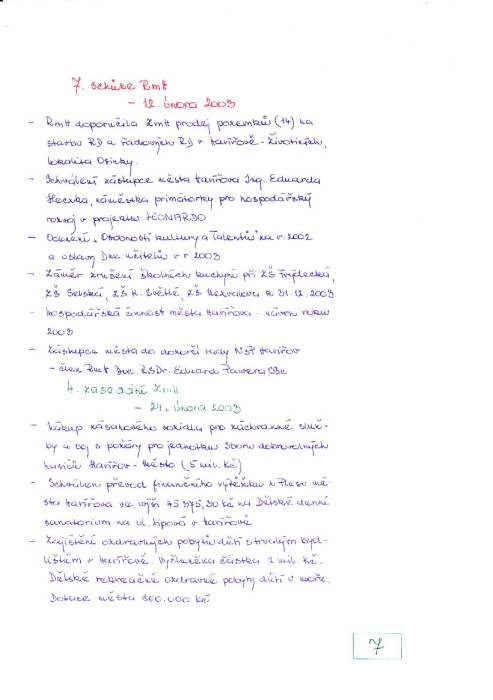 7. schůze RmH
- 12. února 2003
- RmH doporučila ZmH prodej pozemků (14) na
stavbu RD a řadových RD v Havířově - Životicích,
lokalita Osinky.
- Schválení zástupce města Havířova Ing. Eduarda
Heczka, náměstka primátorky pro hospodářský
rozvoj v projektu LEONARDO
- Ocenění "Osobností kultury a Talentů" na r. 2002
a oslavy Dne učitelů v r. 2003
- Záměr zrušení školních kuchyní při ZŠ Frýdecká,
ZŠ Selská, ZŠ K. Světlé, ZŠ Nezvalova k 31. 12. 2003
- Hospodářská činnost města Havířova - návrh roku
2003
- Zástupce města do dozorčí rady NsP Havířov
- člen RmH Doc. RSDr. Eduard Pawera CSc
4. zasedání ZmH
- 24. února 2003
- Nákup zásahového vozidla pro záchranné služ-
by a boj s požáry pro jednotku Sboru dobrovolných
hasičů Havířov - Město (5 mil. Kč)
- Schválen převod finančního výtěžku z Plesu mě-
sta Havířova ve výši 45 975,30 Kč na Dětské denní
sanatorium na ul. Lipová v Havířově
- Zajištění ozdravných pobytů dětí s trvalým byd-
lištěm v Havířově. Vyčleněna částka 2 mil. Kč.
Dětské rekreačně ozdravné pobyty dětí u moře.
Dotace města 800.000 Kč
7